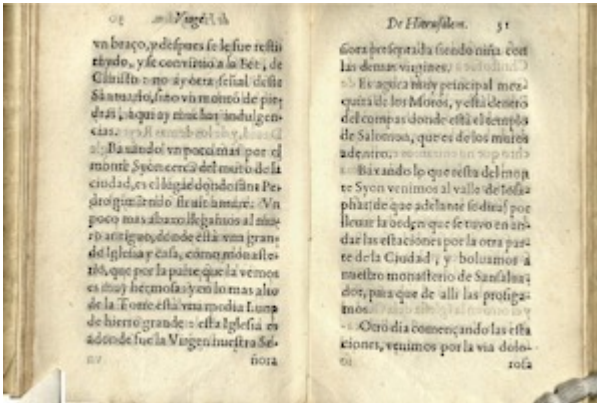 Viage
vn braço, y despues se le fue resti
tuydo, y se conuirtio a la Fee, de
Christo: no ay otra señal deste
Santuario, sino vn monton de pie
dras, aqui ay muchas indulgen-
cias.
Baxando vn poco mas por el
monte Syon cerca del muro de la
ciudad, es el lugar donde san Pe-
dro
poco mas abaxo llegamos al mu-
ro antiguo, donde está vna gran-
de Iglesia y casa, como monaste-
rio, que por la parte que la vemos
es muy hermosa: y en lo mas alto
de la Torre está vna media Luna
de hierro grande: esta Iglesia es
adonde fue la Virgen nuestra Se-
ñora
De Hierusalem. 31
ñora presentada siendo niña con
las demas virgines.
Es agora muy principal mez-
quita de los Moros, y está dentro
del compas donde está el templo
de Salomon, que es de los muros
adentro.
Baxando lo que resta del mon
te Syon venimos al valle de Iosa
phat, de que adelante se dira: por
lleuar la orden que se tuuo en an-
dar las estaciones por la otra par-
te de la Ciudad, y boluamos a
nuestro monasterio de San salua-
dor, para que de alli las prosiga-
mos.
Otro dia començando las esta
ciones, venimos por la via dolo-
rosa